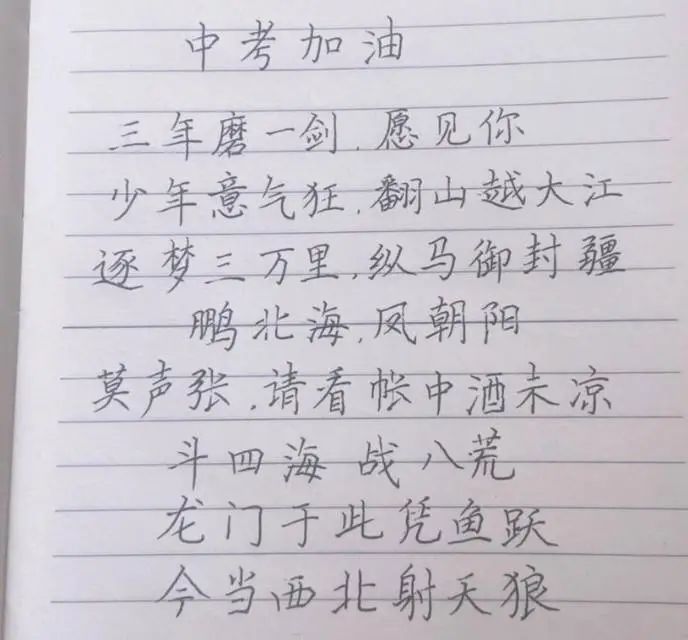 中考加油
三年磨一剑.愿见你
少年意气狂.翻山越大江
逐梦三万里.纵马御封疆
鹏北海.凤朝阳
莫声张.请看帐中酒未凉
斗四海 战八荒
龙门于此凭鱼跃
今当西北射天狼